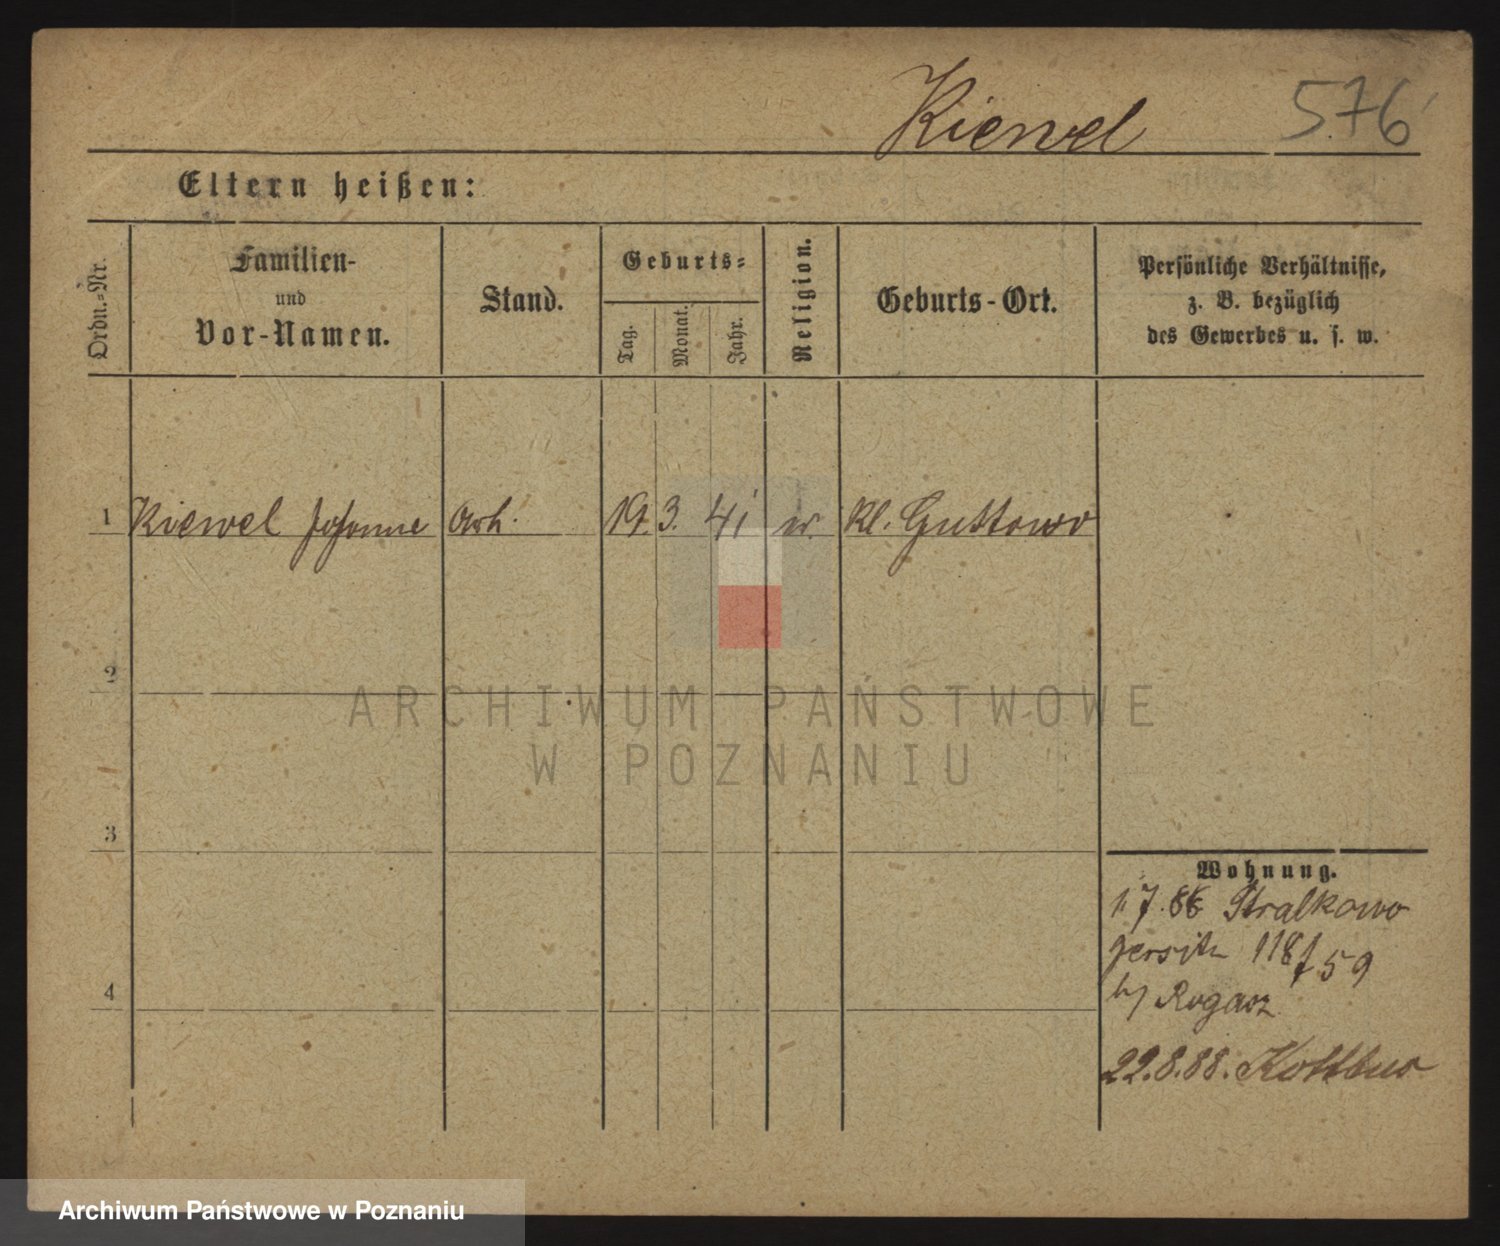 Kiewel 576
Eltern heißen:
Ordn.-Nr.
Familien-
und
Vor-Namen.
Stand.
Geburts-
Tag.
Monat.
Jahr.
Religion.
Geburts-Ort.
Persönliche Verhältnisse,
z. B. bezüglich
des Gewerbes u. s. w.
1 Kiewel Johanne Arb. 19. 3. 41 ev. Kl. Guttowo
2
ARCHIWUM PAŃSTWOWE
W POZNANIU
3
Wohnung.
1. 7. 86 Stralkowo
Jersitz 118/59
b/ Rogasz
4
22.8.88. Kottbus
Archiwum Państwowe w Poznaniu